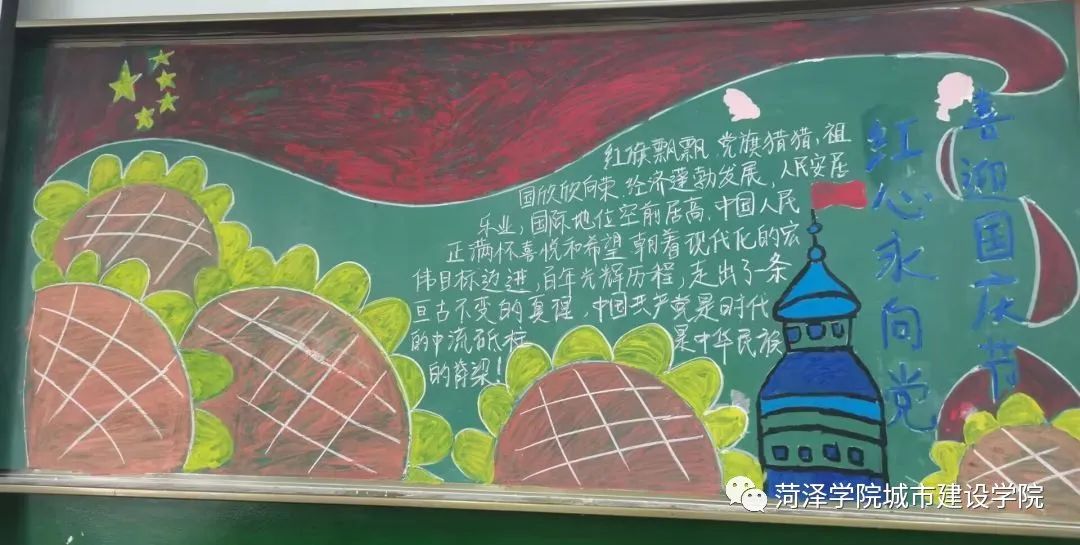 喜迎国庆节
红心永向党
红旗飘飘,党旗猎猎,祖
国欣欣向荣,经济蓬勃发展,人民安居
乐业,国际地位空前居高,中国人民
正满怀喜悦和希望朝着现代化的宏
伟目标迈进,百年光辉历程,走出了一条
亘古不变的真理,中国共产党是时代
的中流砥柱 是中华民族
的脊梁!
菏泽学院城市建设学院